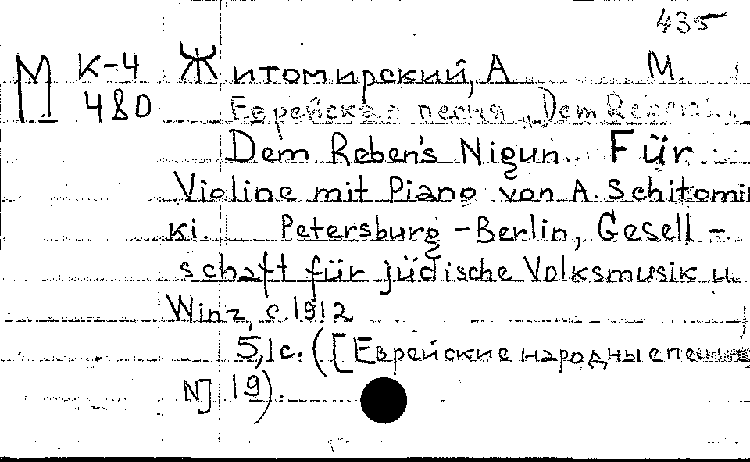 435
М К-4 Житомирский, А М.
480 Еврейская песня „Dem Reben's
Dem Reben's Nigun. Für
Violine mit Piano von A. Schitomir
ki. Petersburg - Berlin, Gesell-
schaft für jüdische Volksmusik u.
Winz, c. 1912
5,1 с. ([Еврейские народные песни
N] 19).